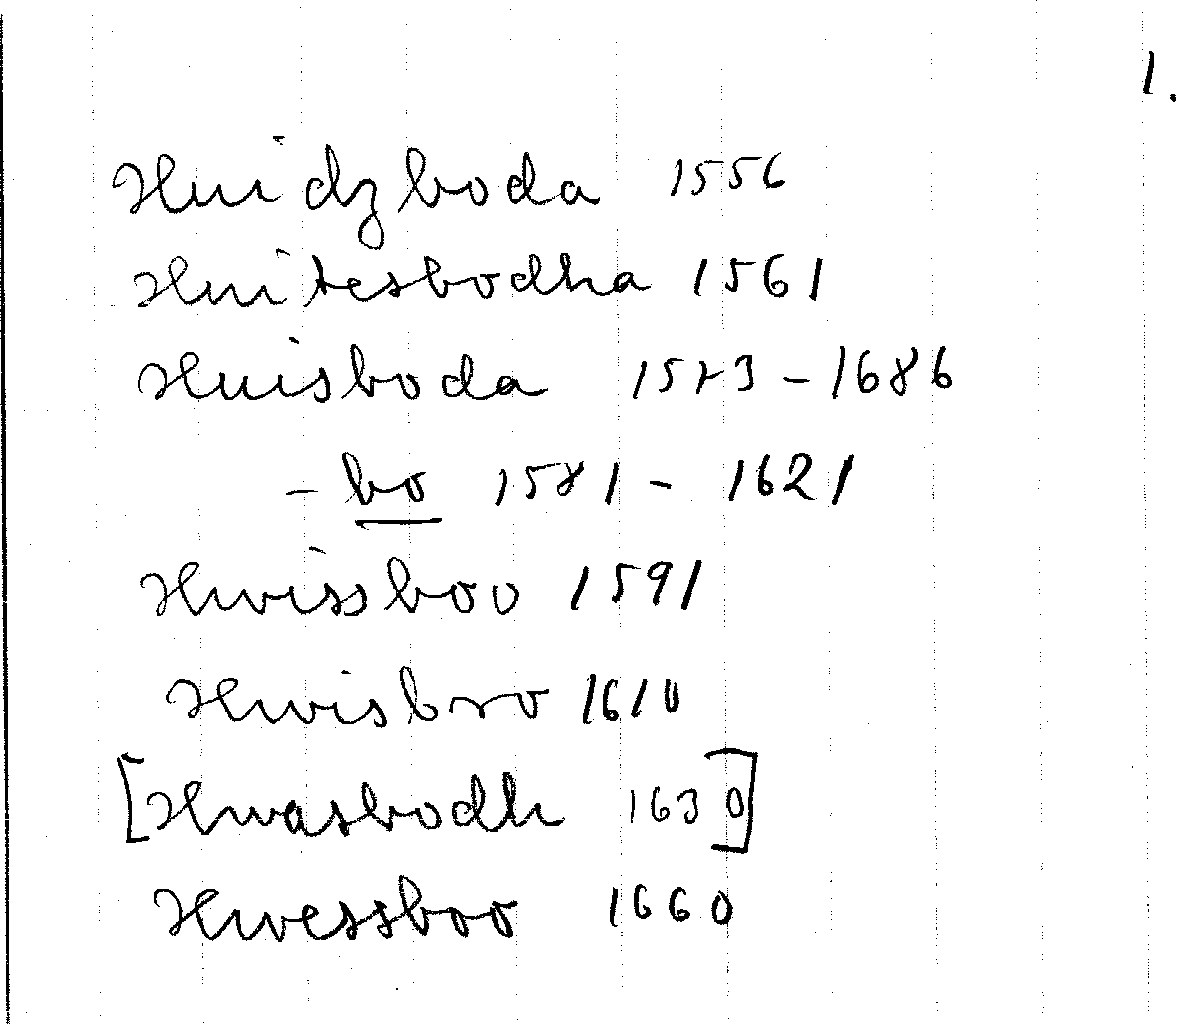 1.
Huidzboda 1556
Huitesbodha 1561
Huisboda 1573-1686
- bo 1581 - 1621
Hwissboo 1591
Hwisbro 1610
[Hwasbodh 1630]
Hwessboo 1660